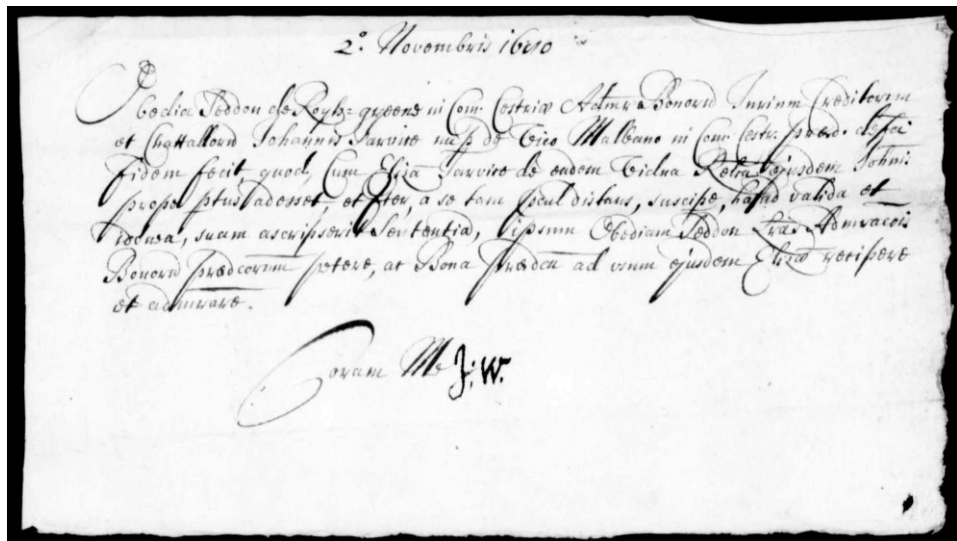 2º. Novembris 1690
Obedia Peddon de Royls greene in Com: Cestriæ Admra Bonorū Iurium Creditorum
et Chattallorū Johannis Jarvise nup de Vico Malbano in Com: Cestr. præd. defti
Fidem fecit, quod, Cum Eliza Jarvise de eadem Vidua Relca ejusdem Johnis
prope adesset, et Iter, a se tam procul distans, suscipe, haud valida et
idonea, suam ascripserit Sententia, ipsum Obediam Peddon Lras Admraco͞is
Bonorū prædcorum petere, ac Bona Prædca ad usum ejusdem Elizæ recipere
et admrare.
Coram Me J: W.